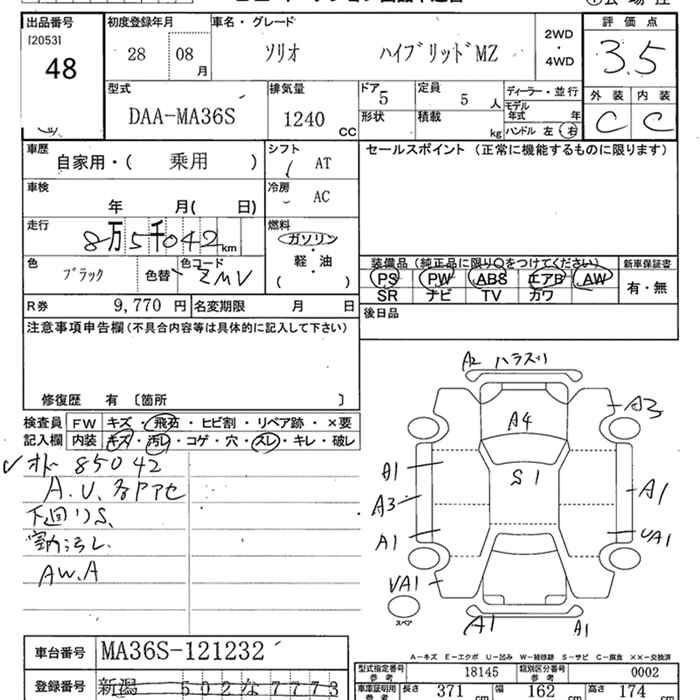 出品番号 初度登録年月 車名・グレード 評価点
[2053] 28 08 月 ソリオ ハイブリッドMZ 2WD・4WD 3.5
48
型式 排気量 ドア 5 定員 5 人 ディーラー・並行 外装 内装
DAA-MA36S 1240 CC 形状 積載 kg モデル年式 年 C C
ハンドル 左・右
車歴 シフト セールスポイント (正常に機能するものに限ります)
自家用・( 乗用 ) AT
車検 冷房
年 月( 日) AC
走行 燃料
8万5千042 km ガソリン
軽・油
( )
色 色コード 装備品(純正品に限り○をつけてください) 新車保証書
ブラック 色替 ZMV PS PW ABS エアB AW 有・無
SR ナビ TV カワ
R券 9,770 円 名変期限 月 日 後日品
注意事項申告欄(不具合内容等は具体的に記入して下さい)
修復歴 有 〔箇所 〕
検査員 FW キズ・飛石・ヒビ割・リペア跡・×要
記入欄 内装 キズ・汚レ・コゲ・穴・スレ・キレ・破レ
オドー 85042
A.U.各アセ
下回りS、
室内汚レ
AW.A
A2 ハラスリ
A4 A3
S1
A1
A3 A1
A1 UA1
UA1
スペア
A1 A1
A-キズ E-エクボ U-凹み W-補修跡 S-サビ C-腐食 XX-交換済
車台番号 MA36S-121232 型式指定番号 参考 18145 類別区分番号 参考 0002
登録番号 新潟 502な7773 車庫証明用 参考 長さ 371 cm 幅 162 cm 高さ 174 cm